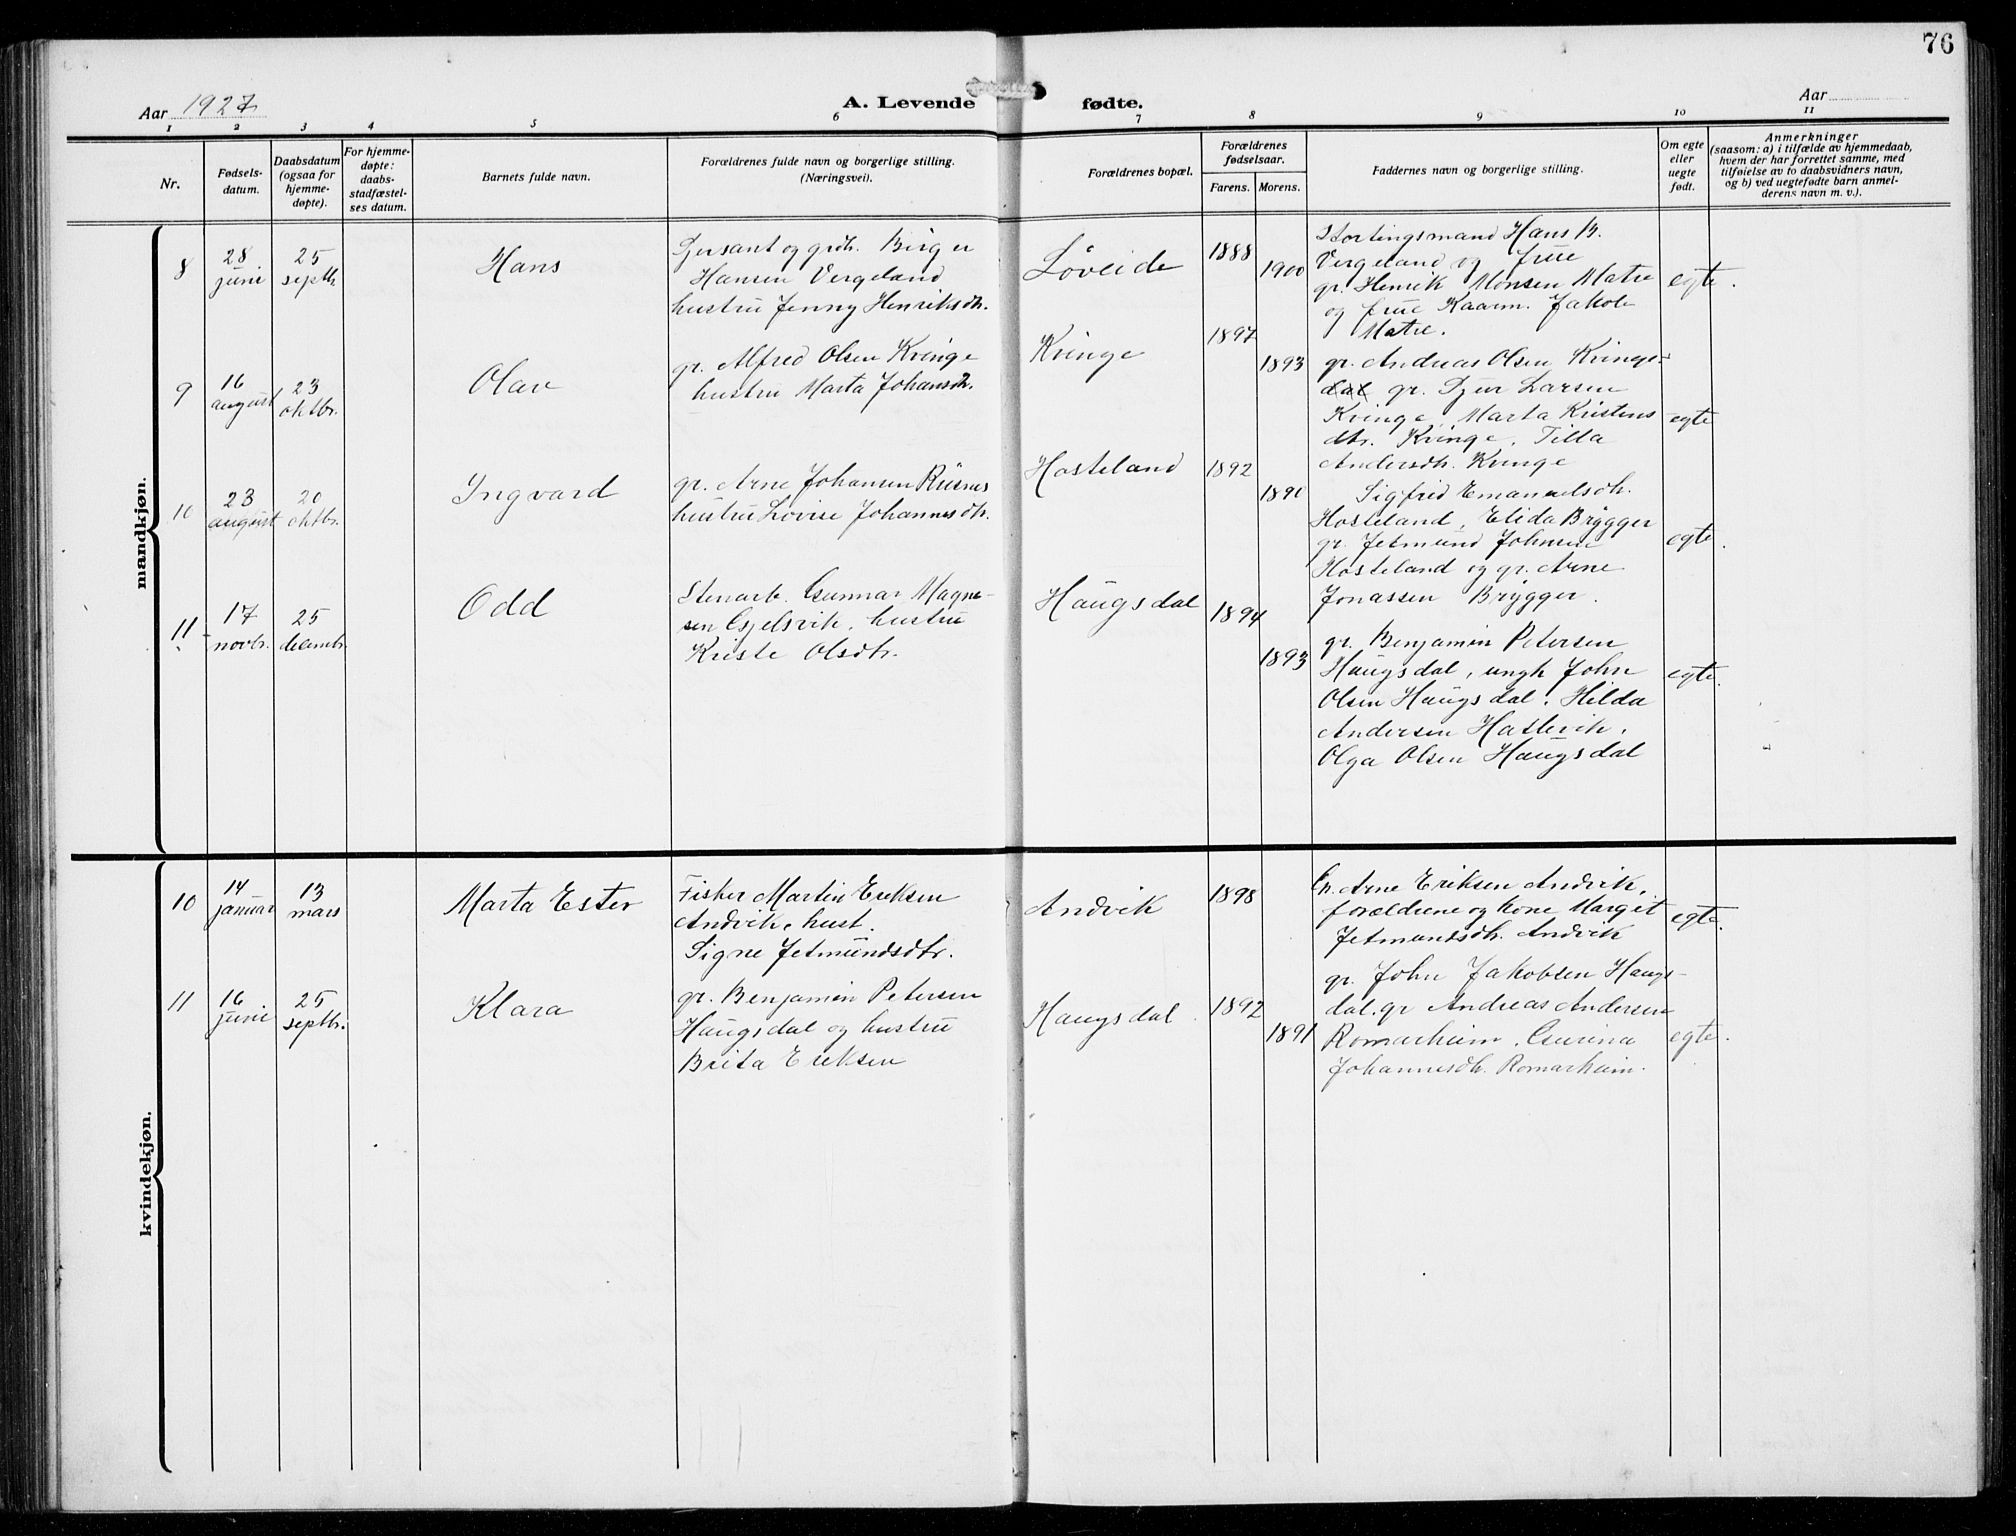 76
Aar 1927
A. Levende fødte.
Aar
1 2 3 4 5 6 7 8 9 10 11
Nr.
Fødsels-
datum.
Daabsdatum
(ogsaa for
hjemme-
døpte).
For hjemme-
døpte:
daabs-
stadfæstel-
ses datum.
Barnets fulde navn.
Forældrenes fulde navn og borgerlige stilling.
(Næringsvei).
Forældrenes bopæl.
Forældrenes
fødselsaar.
Farens. Morens.
Faddernes navn og borgerlige stilling.
Om egte
eller
uegte
født.
Anmerkninger
(saasom: a) i tilfælde av hjemmedaab,
hvem der har forrettet samme, med
tilføielse av to daabsvidners navn,
og b) ved uegtefødte barn anmel-
derens navn m. v.).
mandkjøn.
8
28
juni
25
septbr.
Hans
og grdr. Birger
Hansen Vergeland
hustru Jenny Henriksdtr.
Løveide
1888
1900
Stortingsmand Hans B.
Vergeland og frue
gr. Henrik Monsen Matre
og frue Jakob
Matre.
egte.
9
16
august
23
oktbr.
Olav
gr. Alfred Olsen Kvinge
hustru Marta Johansdtr.
Kvinge
1897
1893
gr. Andreas Olsen Kvings-
dal gr. Sjur Larsen
Kvinge, Marta Kristens
dtr. Kvinge, Tilla
Andersdtr. Kvinge
egte
10
23
august
20
oktbr.
Ingvard
gr. Arne Johansen Risnes
hustru Lovise Johannesdtr.
Hosteland
1892
1890
Sigfrid Emanuelsdtr.
Hosteland, Elida Brygger
gr. Jetmund Johnsen
Hosteland og gr. Arne
Jonassen Brygger.
egte.
11
17
novbr.
25
decembr.
Odd
Stenarb. Gunnar Magne-
sen Gjelsvik, hustru
Kriste Olsdtr.
Haugsdal
1894
1893
gr. Benjamin Petersen
Haugsdal, ungk John
Olsen Haugsdal. Hilda
Andersen Hatlevik,
Olga Olsen Haugsdal
egte.
kvindekjøn.
10
14
januar
13
mars
Marta Ester
Fisker Martin Eriksen
Andvik, hust.
Signe Jetmundsdtr.
Andvik
1898
Gr. Arne Eriksen Andvik,
forældrene og kone Margit
Jetmundsdtr. Andvik
egte.
11
16
juni
25
septbr.
Klara
gr. Benjamin Petersen
Haugsdal og hustru
Brita Eriksen
Haugsdal.
1892
1891
gr. John Jakobsen Haugs-
dal, gr Andreas Andersen
Romarheim, Gurina
Johannesdtr. Romarheim.
egte.